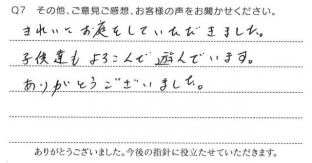 Q7 その他、ご意見ご感想、お客様の声をお聞かせください。
きれいにお庭をしていただきました。
子供達もよろこんで遊んでいます。
ありがとうございました。
ありがとうございました。今後の指針に役立たせていただきます。